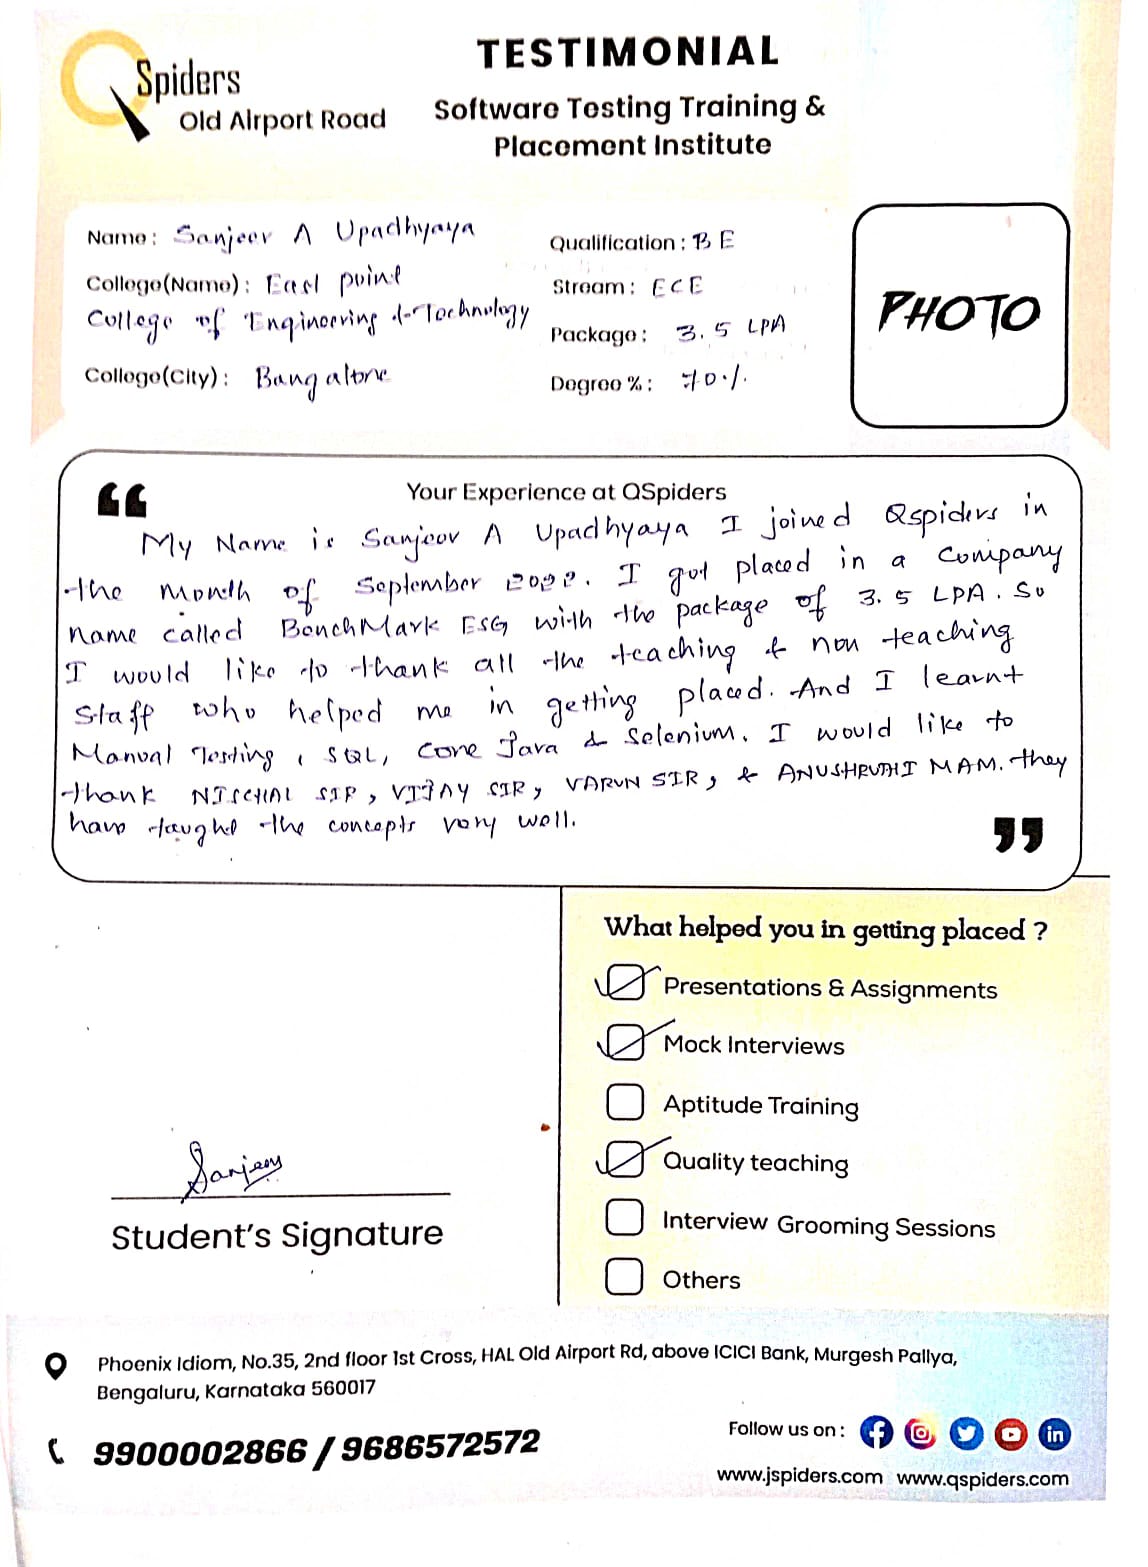 TESTIMONIAL
Spiders
Old Airport Road
Software Testing Training &
Placement Institute
Name: Sanjeev A Upadhyaya
College(Name): East point
College of Engineering & Technology
College(City): Bangalore
Qualification: BE
Stream: ECE
Package: 3.5 LPA
Degree %: 70%
PHOTO
Your Experience at QSpiders
My Name is Sanjeev A Upadhyaya I joined Qspiders in
the month of September 2022. I got placed in a company
name called BenchMark ESG with the package of 3.5 LPA. So
I would like to thank all the teaching & non teaching
Staff who helped me in getting placed. And I learnt
Manual Testing, SQL, Core Java & Selenium. I would like to
thank NISCHAL SIR, VIJAY SIR, VARUN SIR, & ANUSHRUTHI MAM. they
have taught the concepts very well.
What helped you in getting placed ?
Presentations & Assignments
Mock Interviews
Aptitude Training
Quality teaching
Interview Grooming Sessions
Others
Sanjeev
Student's Signature
Phoenix Idiom, No.35, 2nd floor 1st Cross, HAL Old Airport Rd, above ICICI Bank, Murgesh Pallya,
Bengaluru, Karnataka 560017
9900002866 / 9686572572
Follow us on :
www.jspiders.com www.qspiders.com